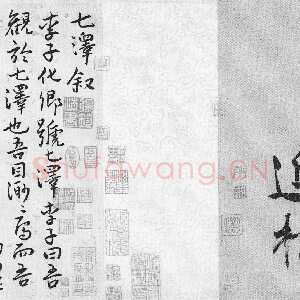 七澤叙
李子化卿號七澤李子曰吾
觀於七澤也吾目渺〻焉而吾
Shufawang.CN